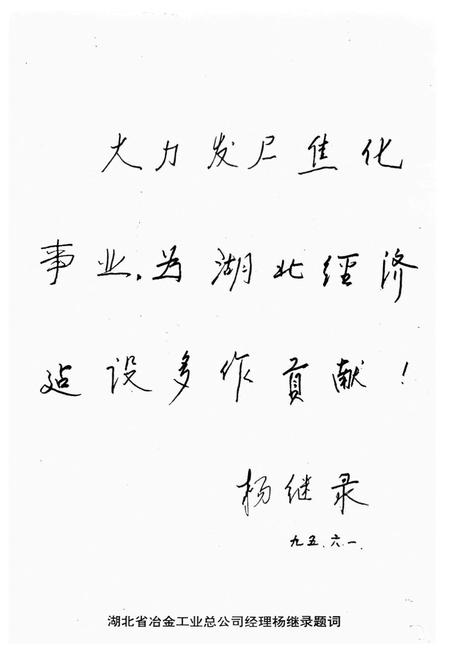 大力发尸焦化
事业，为湖北经济
迠设多作贡献！
杨继录
九五.六.一.
湖北省冶金工业总公司经理杨继录题词